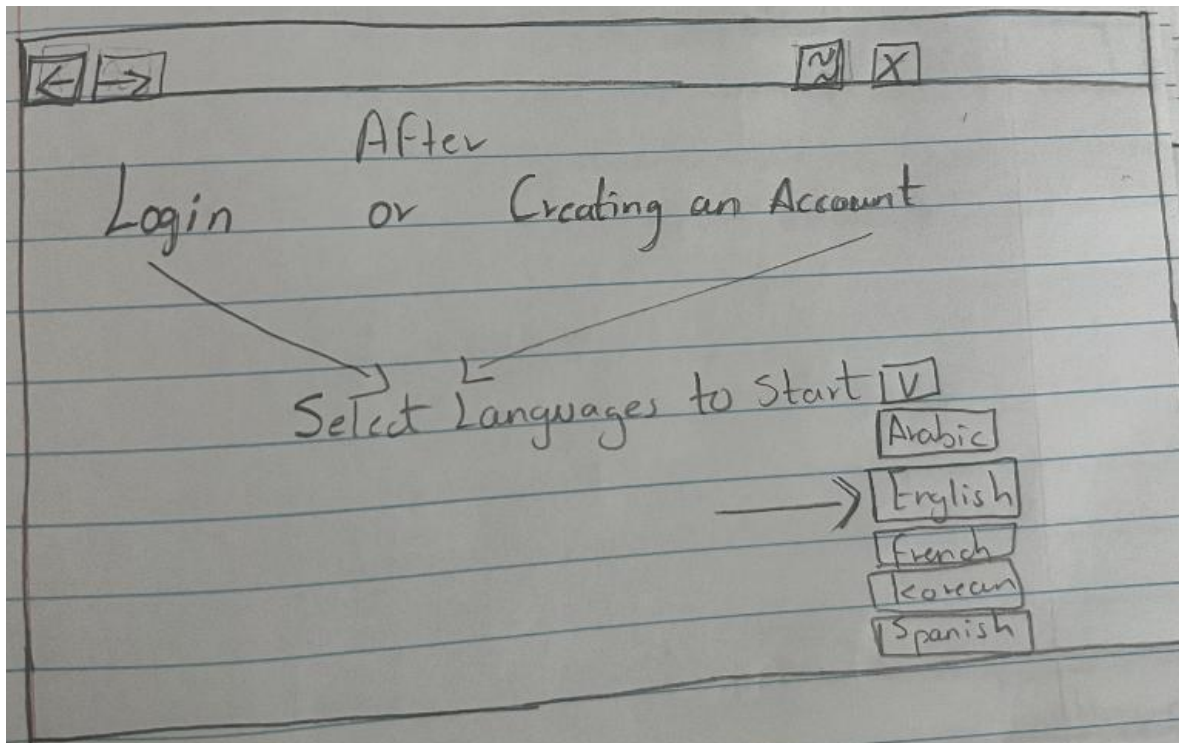 ← → ≈ X
After
Login or Creating an Account
Select Languages to Start V
Arabic
English
French
Korean
Spanish